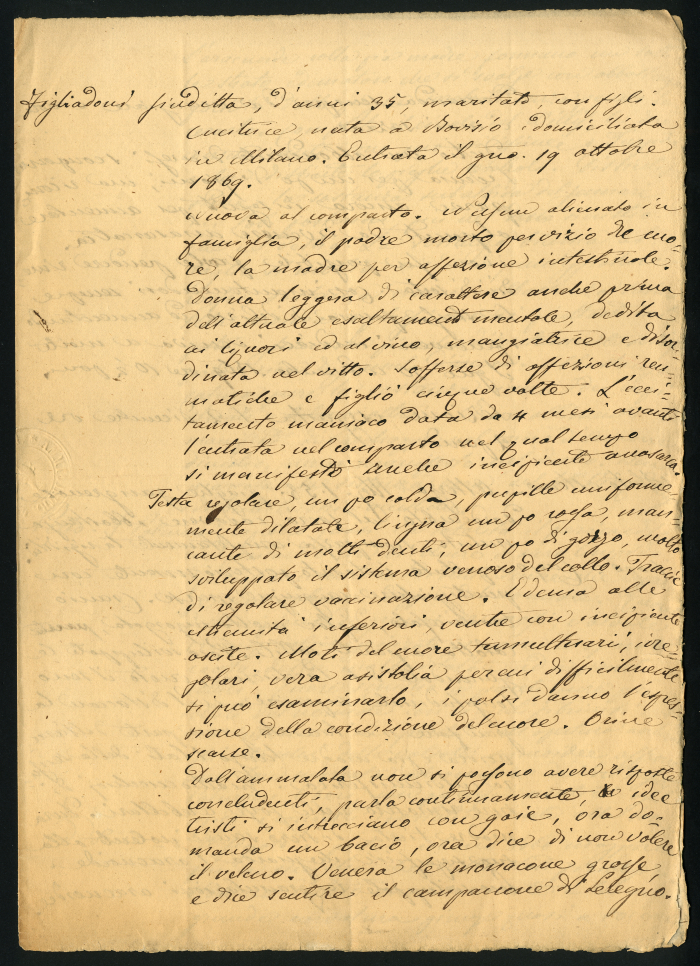 Figliadoni Giuditta, d'anni 35, maritata, con figli.
Cucitrice, nata a Bovisio domiciliata
in Milano. Entrata il gno. 19 ottobre
1869.
Nuova al comparto. Nessun alienato in
famiglia, il padre morto per vizio di cuo-
re, la madre per affezione intestinale.
Donna leggera di carattere anche prima
dell'attuale esaltamento mentale, dedita
ai liquori ed al vino, mangiatrice e disor-
dinata nel vitto. Sofferse di affezioni reu-
matiche e figliò cinque volte. L'ecci-
tamento maniaco data da 4 mesi avanti
l'entrata nel comparto nel qual tempo
si manifestò anche incipiente anasarca.
Testa regolare, un po calda, pupille uniforme-
mente dilatate, lingua un po rossa, man-
cante di molti denti, un po di gozzo, molto
sviluppato il sistema venoso del collo. Traccie
di regolare vaccinazione. Edema alle
estremità inferiori, ventre con incipiente
ascite. Moti del cuore tumultuarii, irre-
golari vera asistolia percui difficilmente
si può esaminarlo, i polsi danno l'espres-
sione della condizione del cuore. Orine
scarse.
Dall'ammalata non si possono avere risposte
concludenti, parla continuamente, le idee
tristi si intrecciano con gaie, ora do-
manda un bacio, ora dice di non volere
il veleno. Venera le monacone grosse,
e dice sentire il campanone di Lelegno.